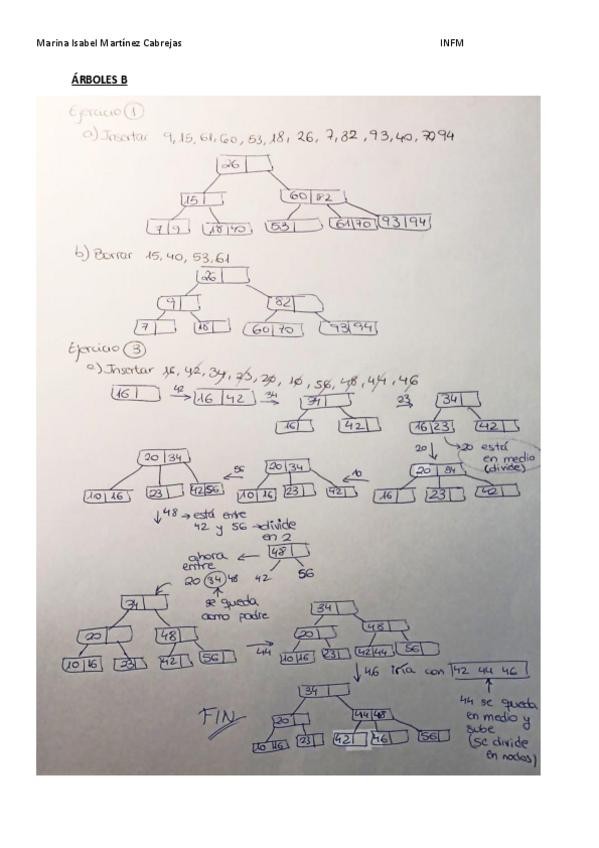 Marina Isabel Martínez Cabrejas INFM
ÁRBOLES B
Ejercicio 1
a) Insertar 9, 15, 61, 60, 53, 18, 26, 7, 82, 93, 40, 70 94
26
15 60 82
7 9 18 40 53 61 70 93 94
b) Borrar 15, 40, 53, 61
26
9 82
7 18 60 70 93 94
Ejercicio 3
a) Insertar 16, 42, 34, 23, 20, 10, 56, 48, 44, 46
16 42 16 42 34 34 23 34
16 42 16 23 42
20 20 está
en medio
(divide)
20 34 56 20 34 10 20 34
10 16 23 42 56 10 16 23 42 16 23 42
48 → está entre
42 y 56 → divide
en 2
ahora 48
entre 42 56
20 34 48
se queda
como padre
34 34
20 48 20 48
10 16 23 42 56 44 10 16 23 42 44 56
46 iría con 42 44 46
44 se queda
en medio y
sube
(se divide
en nodos)
34
FIN 20 44 48
10 16 23 42 46 56